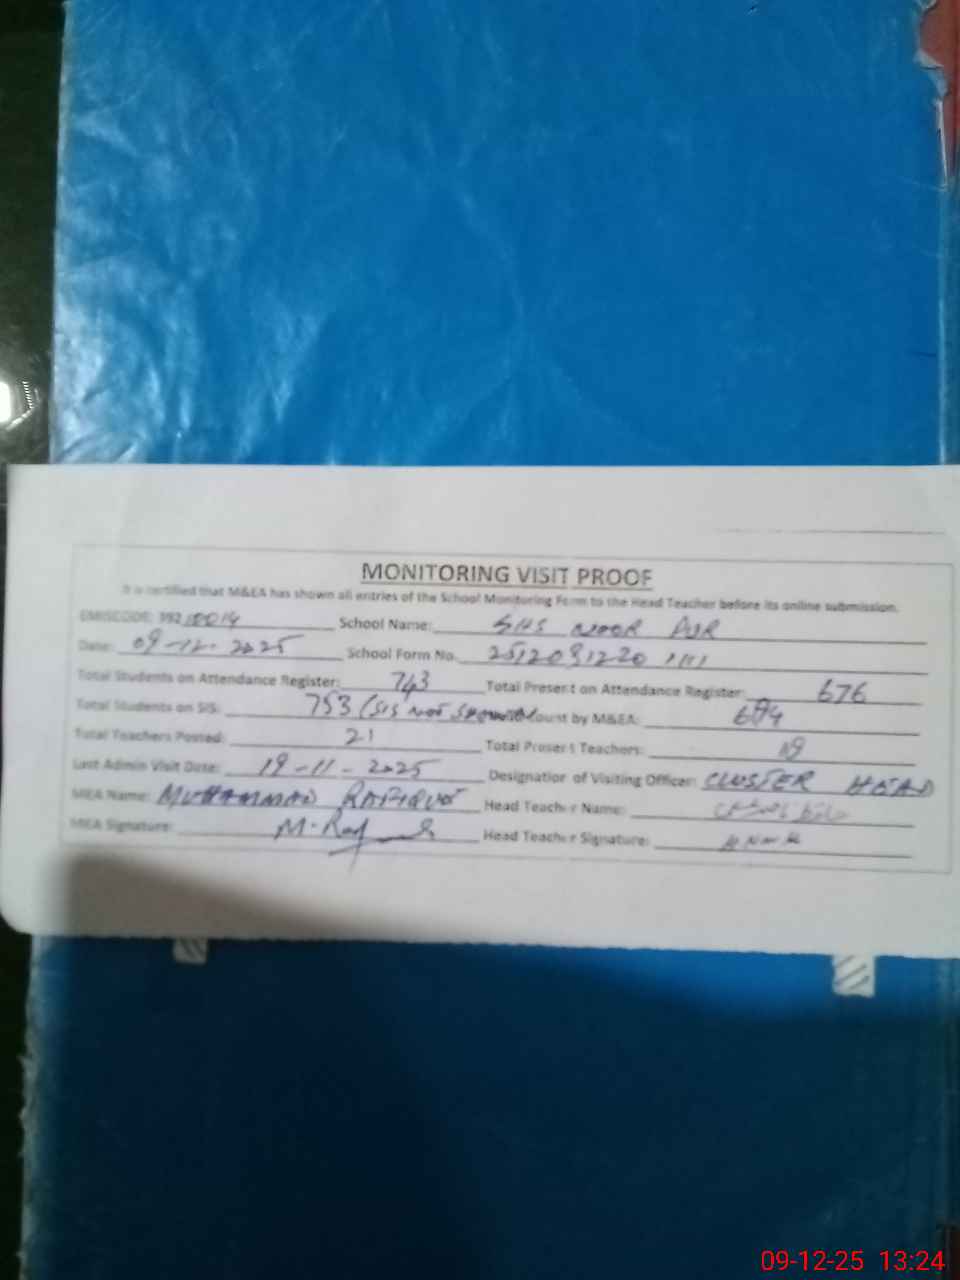 MONITORING VISIT PROOF
It is certified that M&EA has shown all entries of the School Monitoring Form to the Head Teacher before its online submission.
EMISCODE: 392 10014 School Name: GHS NOOR PUR
Date: 09-12-2025 School Form No. 2512091220
Total Students on Attendance Register: 743 Total Present on Attendance Register: 676
Total Students on SIS: 753 (SIS NOT SHOWN) Count by M&EA:
Total Teachers Posted: 21 Total Present Teachers: 19
Last Admin Visit Date: 19-11-2025 Designation of Visiting Officer: CLUSTER HEAD
MEA Name: MUHAMMAD Head Teacher Name:
MEA Signature: Head Teacher Signature:
09-12-25 13:24